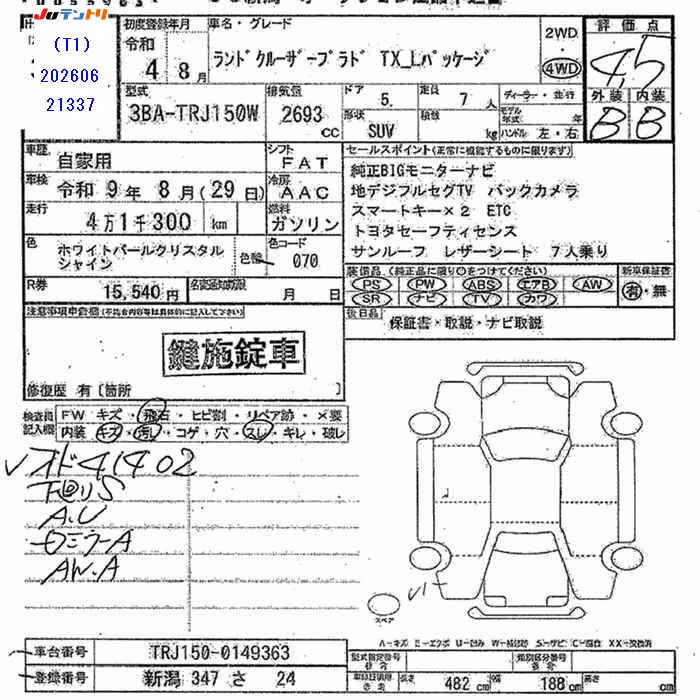 JUテントリ
(T1)
202606
21337
初度登録年月
令和
4年 8月
車名・グレード
ランドクルーザープラド TX_Lパッケージ
2WD
4WD
評価点
4.5
外装 内装
B B
型式
3BA-TRJ150W
排気量
2693 cc
ドア 5
形状 SUV
定員 7人
積載 kg
ディーラー・並行
モデル年式 年
ハンドル 左・右
車歴 自家用
シフト FAT
車検 令和 9年 8月(29日)
冷房 AAC
走行 4万1千300 km
燃料 ガソリン
色 ホワイトパールクリスタルシャイン
色替
色コード 070
R券 15,540円
名変通知期限 月 日
セールスポイント(正常に機能するものに限ります)
純正BIGモニターナビ
地デジフルセグTV バックカメラ
スマートキー×2 ETC
トヨタセーフティセンス
サンルーフ レザーシート 7人乗り
装備品(純正品に限り○をつけてください)
PS PW ABS エアB AW
SR ナビ TV カワ
新車保証書
有・無
後日品
保証書・取説・ナビ取説
注意事項申告欄
鍵施錠車
修復歴 有〔箇所
検査員記入欄
FW キズ・飛石・ヒビ割・リペア跡・×要
内装 キズ・汚れ・コゲ・穴・スレ・キレ・破レ
オド41402
A.U
AW.A
スペア
車台番号 TRJ150-0149363
登録番号 新潟 347 さ 24
型式指定番号
類別区分番号
長さ 482 cm
幅 188 cm
高さ cm